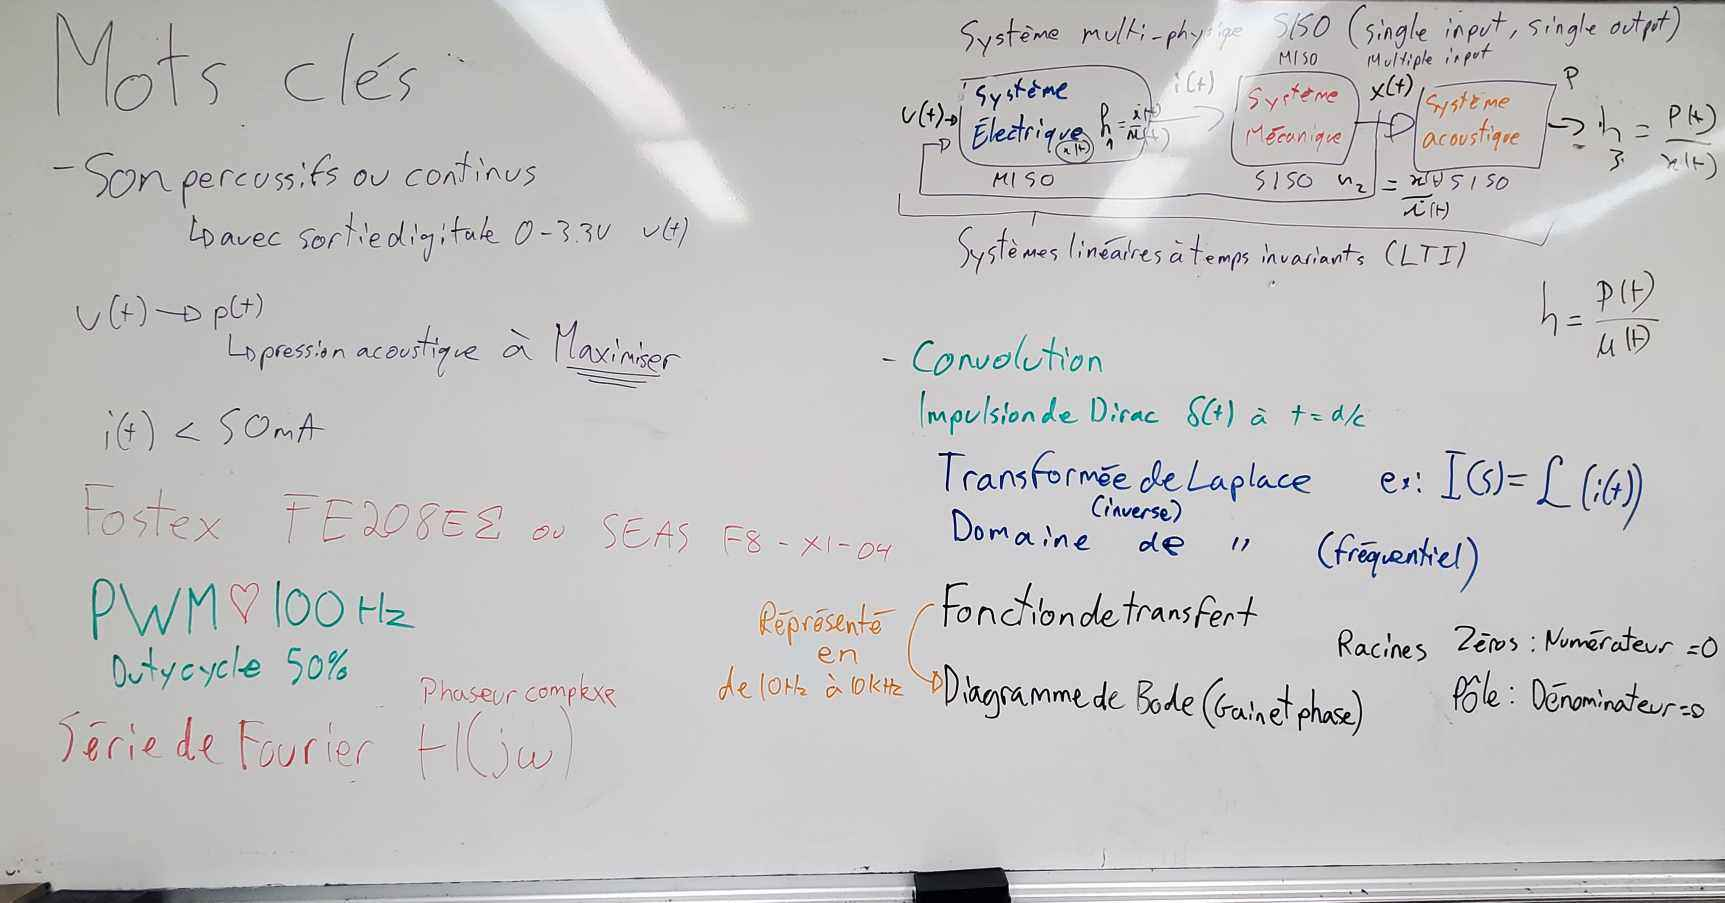 Mots clés
- Son percussifs ou continus
↳ avec sortie digitale 0-3.3V v(t)
v(t) → p(t)
↳ pression acoustique à Maximiser
i(t) < 50mA
Fostex FE208EΣ ou SEAS F8-X1-04
PWM ♡ 100Hz
Dutycycle 50%
Phaseur complexe
Série de Fourier H(jω)
Système multi-physique SISO (single input, single output)
MISO Multiple input
v(t) → Système Électrique
h1 = i(t)/u(t)
x(t)
MISO
i(t)
Système Mécanique
SISO
x(t)
h2 = x(t)/i(t)
Système acoustique
SISO
P
h3 = P(t)/x(t)
Systèmes linéaires à temps invariants (LTI)
h = P(t)/u(t)
- Convolution
Impulsion de Dirac δ(t) à t = d/c
Transformée de Laplace ex: I(s) = ℒ(i(t))
(inverse)
Domaine de " (fréquentiel)
Fonction de transfert
Réprésenté
en
de 10Hz à 10kHz
Diagramme de Bode (Gain et phase)
Racines Zéros : Numérateur = 0
Pôle : Dénominateur = 0